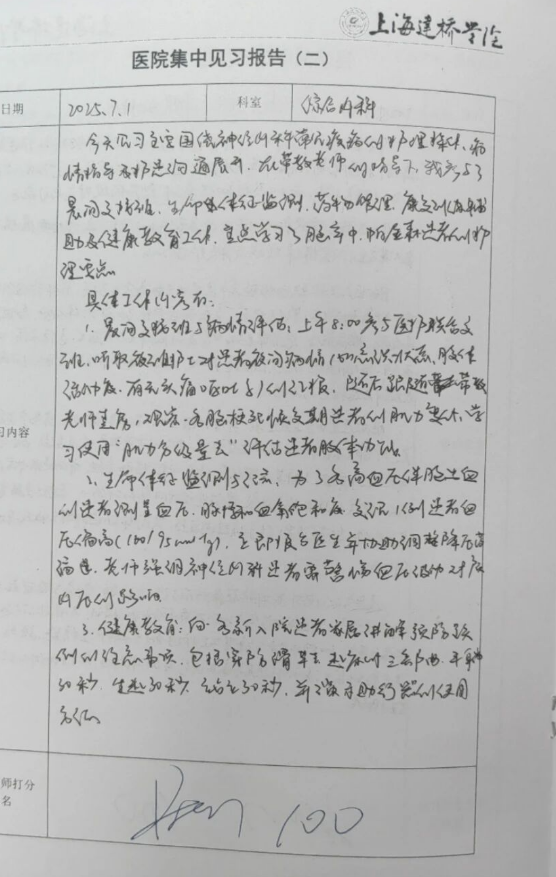 上海建桥学院
医院集中见习报告（二）
日期 2025.7.1 科室 综合内科
今天见习主要围绕神经内科常见疾病的护理操作、病
情指导及护患沟通展开，在带教老师的指导下，我参与了
晨间交接班、生命体征监测、药物管理、康复训练辅
助及健康教育工作，重点学习了脑卒中、患者的护
理要点
具体工作内容有：
1. 晨间交接班与病情评估：上午8:00参与医护联合交
班，听取夜班护士对患者夜间病情（如意识状态、肢体
活动度、有无头痛呕吐等）的汇报，随后跟随带教
老师查房，观察一名脑梗死恢复期患者的肌力变化，学
习使用“肌力分级量表”评估患者肢体功能。
2. 生命体征监测与记录：为3名高血压伴脑出血
的患者测量血压、脉搏和血氧饱和度，发现1例患者血
压偏高，立即报告医生并协助调整降压药
老师强调神经内科患者需警惕血压波动对颅
内压的影响
3. 健康教育：向名新入院患者发展讲解预防跌
倒的注意事项，包括穿防滑鞋、起床时三部曲：平躺
30秒、坐起30秒、站立30秒，并演示助行器的使用
方法。
习内容
师打分
名
100